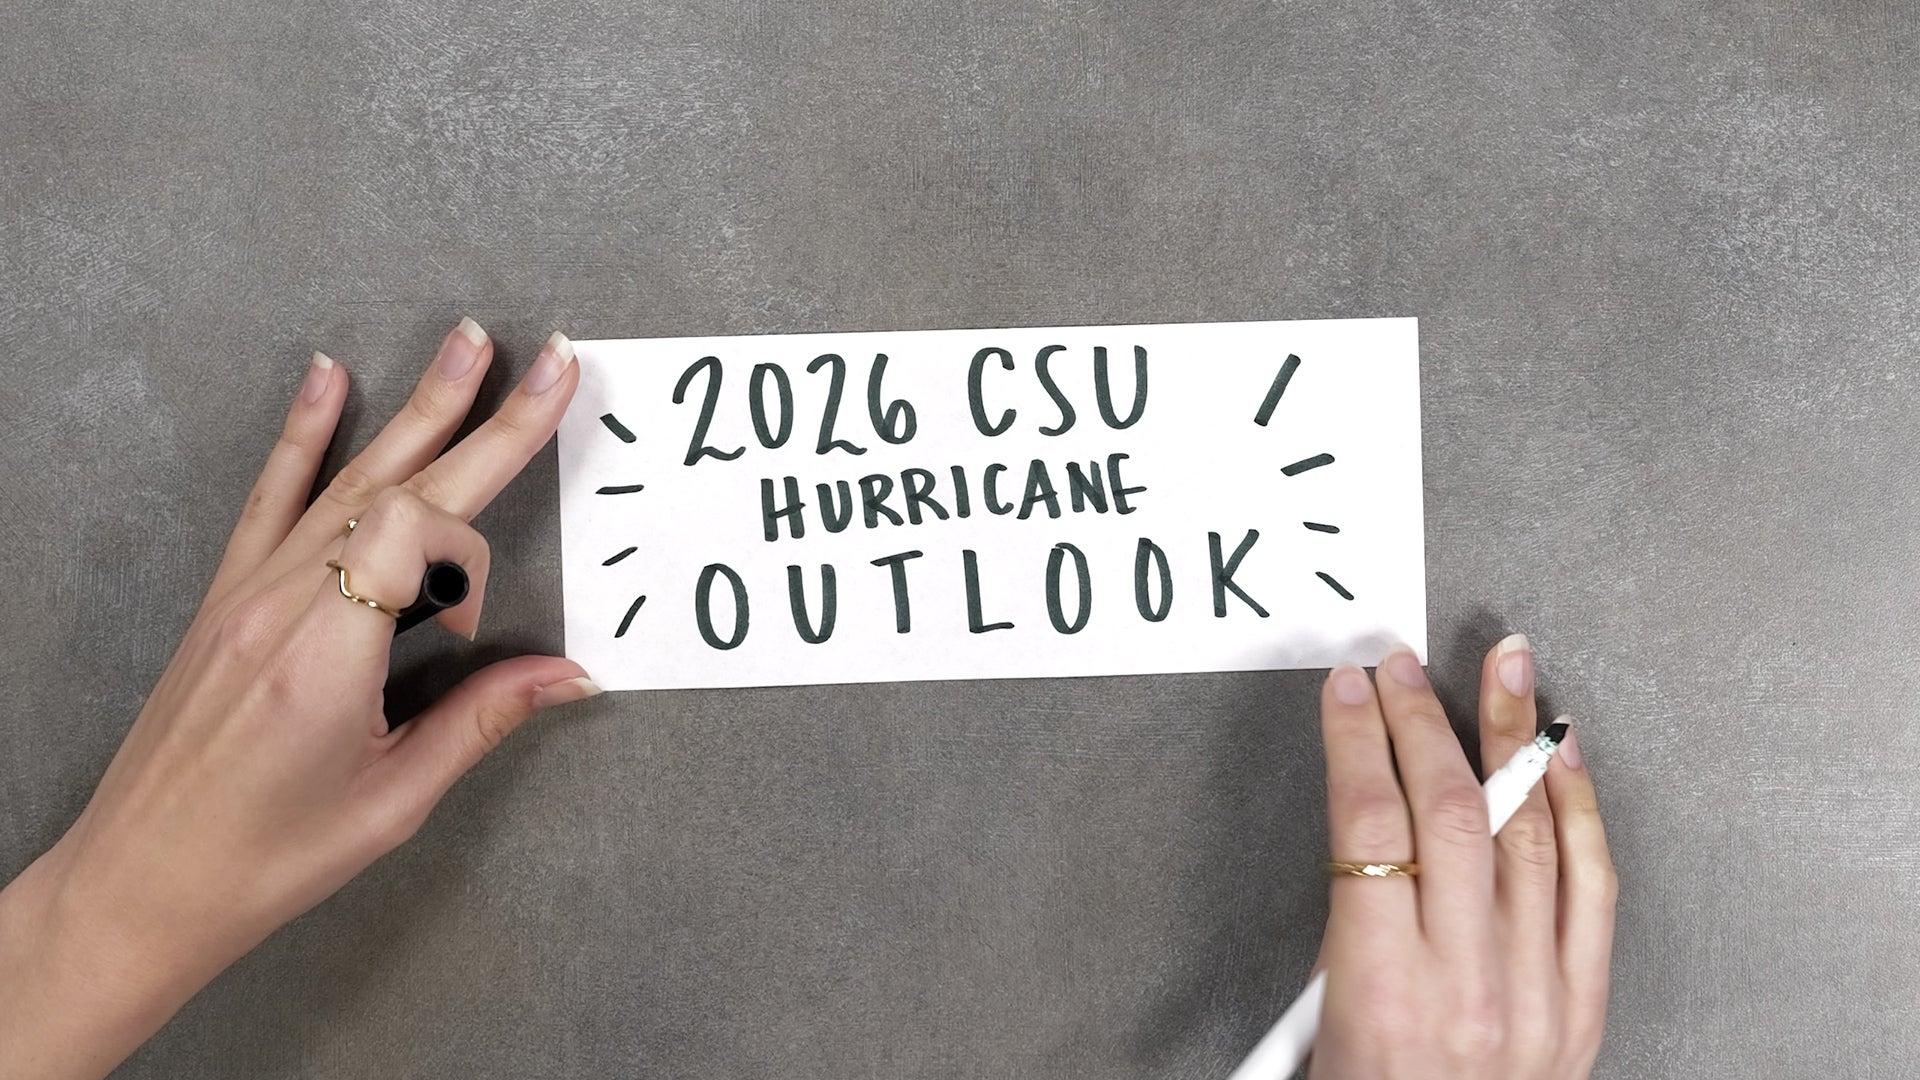 2026 CSU
HURRICANE
OUTLOOK